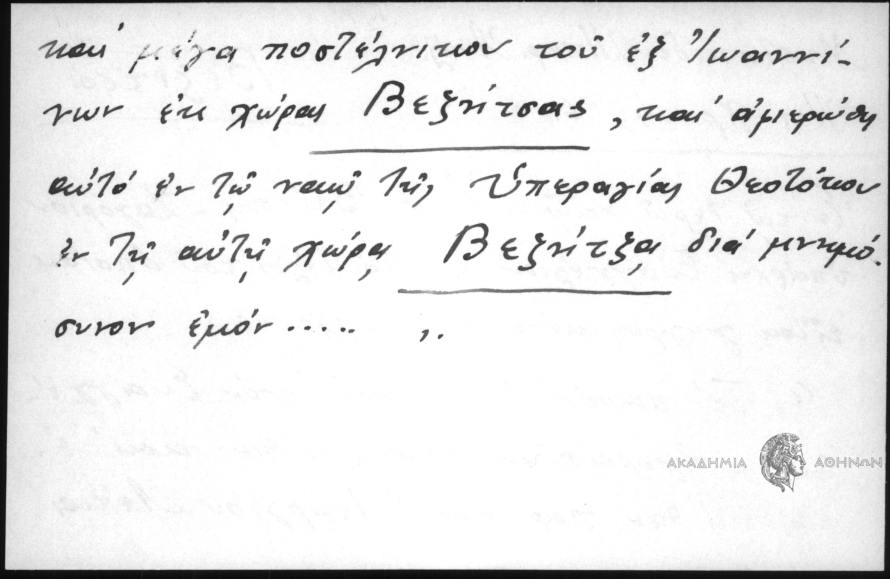 καί μέγα ποστέλνικον τοῦ ἐξ Ἰωαννί-
νων ἐκ χώρας Βεζνίτσας, καί ἀφιερώθη
αὐτό ἐν τῷ ναῷ τῆς Ὑπεραγίας Θεοτόκου
ἐν τῇ αὐτῇ χώρᾳ Βεζνίτζᾳ διά μνημό-
συνον ἐμόν ..... ".
ΑΚΑΔΗΜΙΑ ΑΘΗΝΩΝ